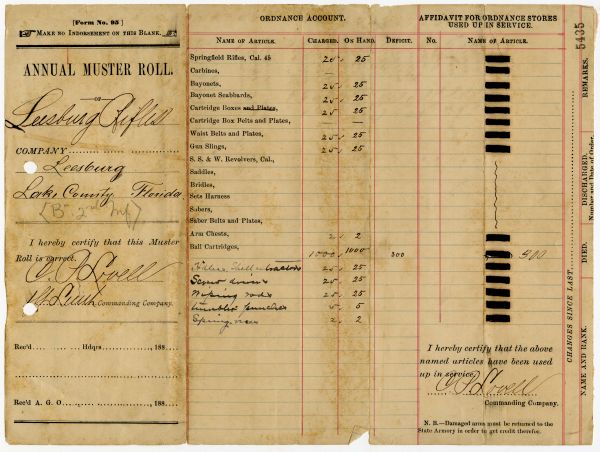 [Form No. 95]
MAKE NO INDORSEMENT ON THIS BLANK.
ANNUAL MUSTER ROLL.
OF
Leesburg Rifles
COMPANY
Leesburg
Lake County Florida
(B- 2nd Inf)
I hereby certify that this Muster
Roll is correct.
C. P. Lovell
1st Lieut Commanding Company.
Rec'd Hdqrs. 188
Rec'd A. G. O. 188
ORDNANCE ACCOUNT.
NAME OF ARTICLE. CHARGED. ON HAND. DEFICIT.
Springfield Rifles, Cal. 45 25 25
Carbines, —
Bayonets, 25 25
Bayonet Scabbards, 25 25
Cartridge Boxes and Plates, 25 25
Cartridge Box Belts and Plates, —
Waist Belts and Plates, 25 25
Gun Slings, 25 25
S. S. & W. Revolvers, Cal.,
Saddles,
Bridles,
Sets Harness
Sabers,
Saber Belts and Plates,
Arm Chests, 2 2
Ball Cartridges, 1000 1000 300
Shell extractors 25 25
Screw drivers 25 25
Wiping rods 25 25
tumbler punches 5 5
Spring vices 2 2
AFFIDAVIT FOR ORDNANCE STORES
USED UP IN SERVICE.
No. NAME OF ARTICLE.
300
I hereby certify that the above
named articles have been used
up in service.
C. P. Lovell
Commanding Company.
N. B.—Damaged arms must be returned to the
State Armory in order to get credit therefor.
5435
CHANGES SINCE LAST
NAME AND RANK. DIED. DISCHARGED. REMARKS.
Number and Date of Order.